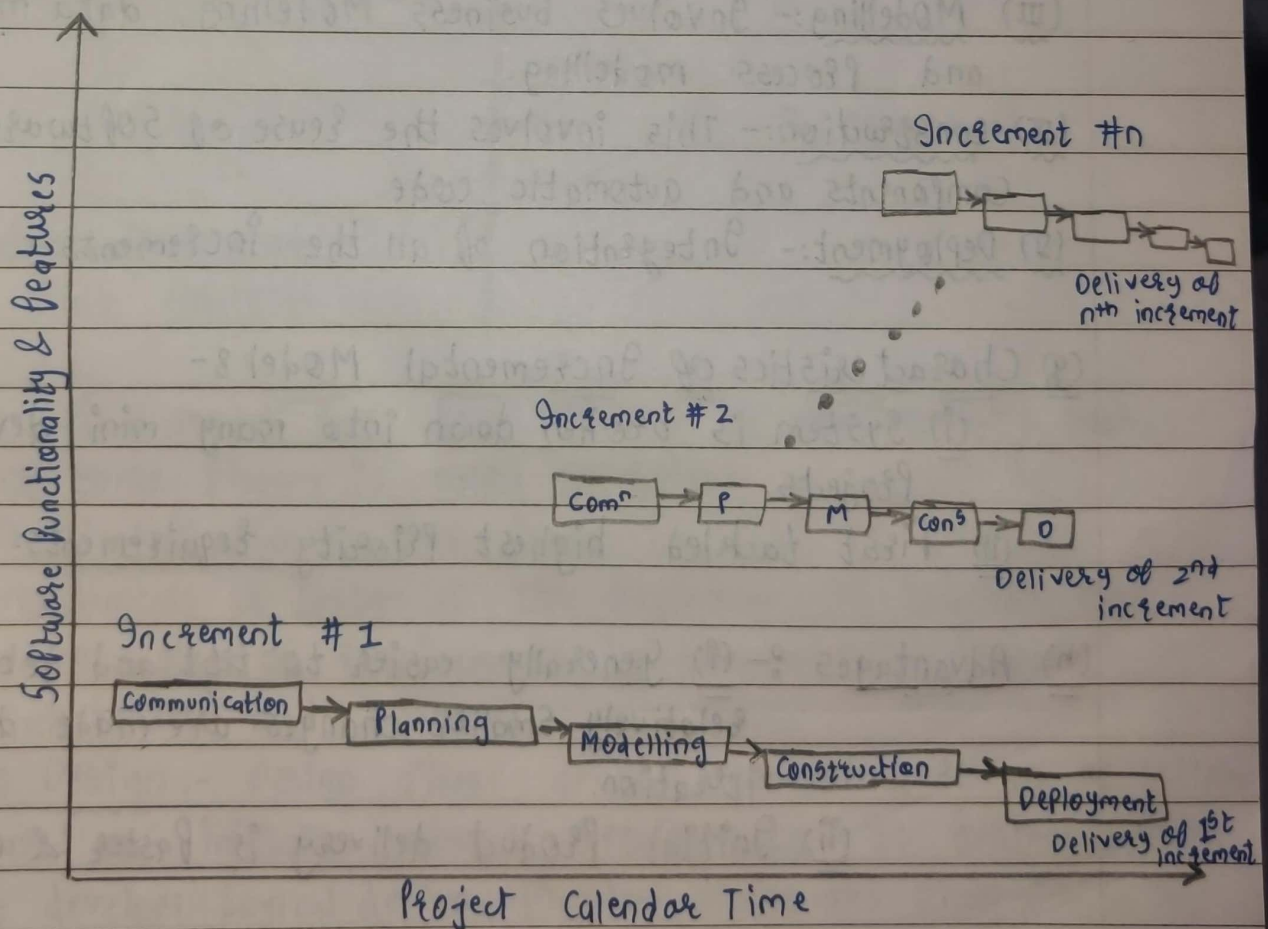 Software Functionality & Features
Increment #n
Delivery of
nth increment
Increment #2
Comⁿ
P
M
Conˢ
D
Delivery of 2nd
increment
Increment #1
Communication
Planning
Modelling
Construction
Deployment
Delivery of 1st
increment
Project Calendar Time